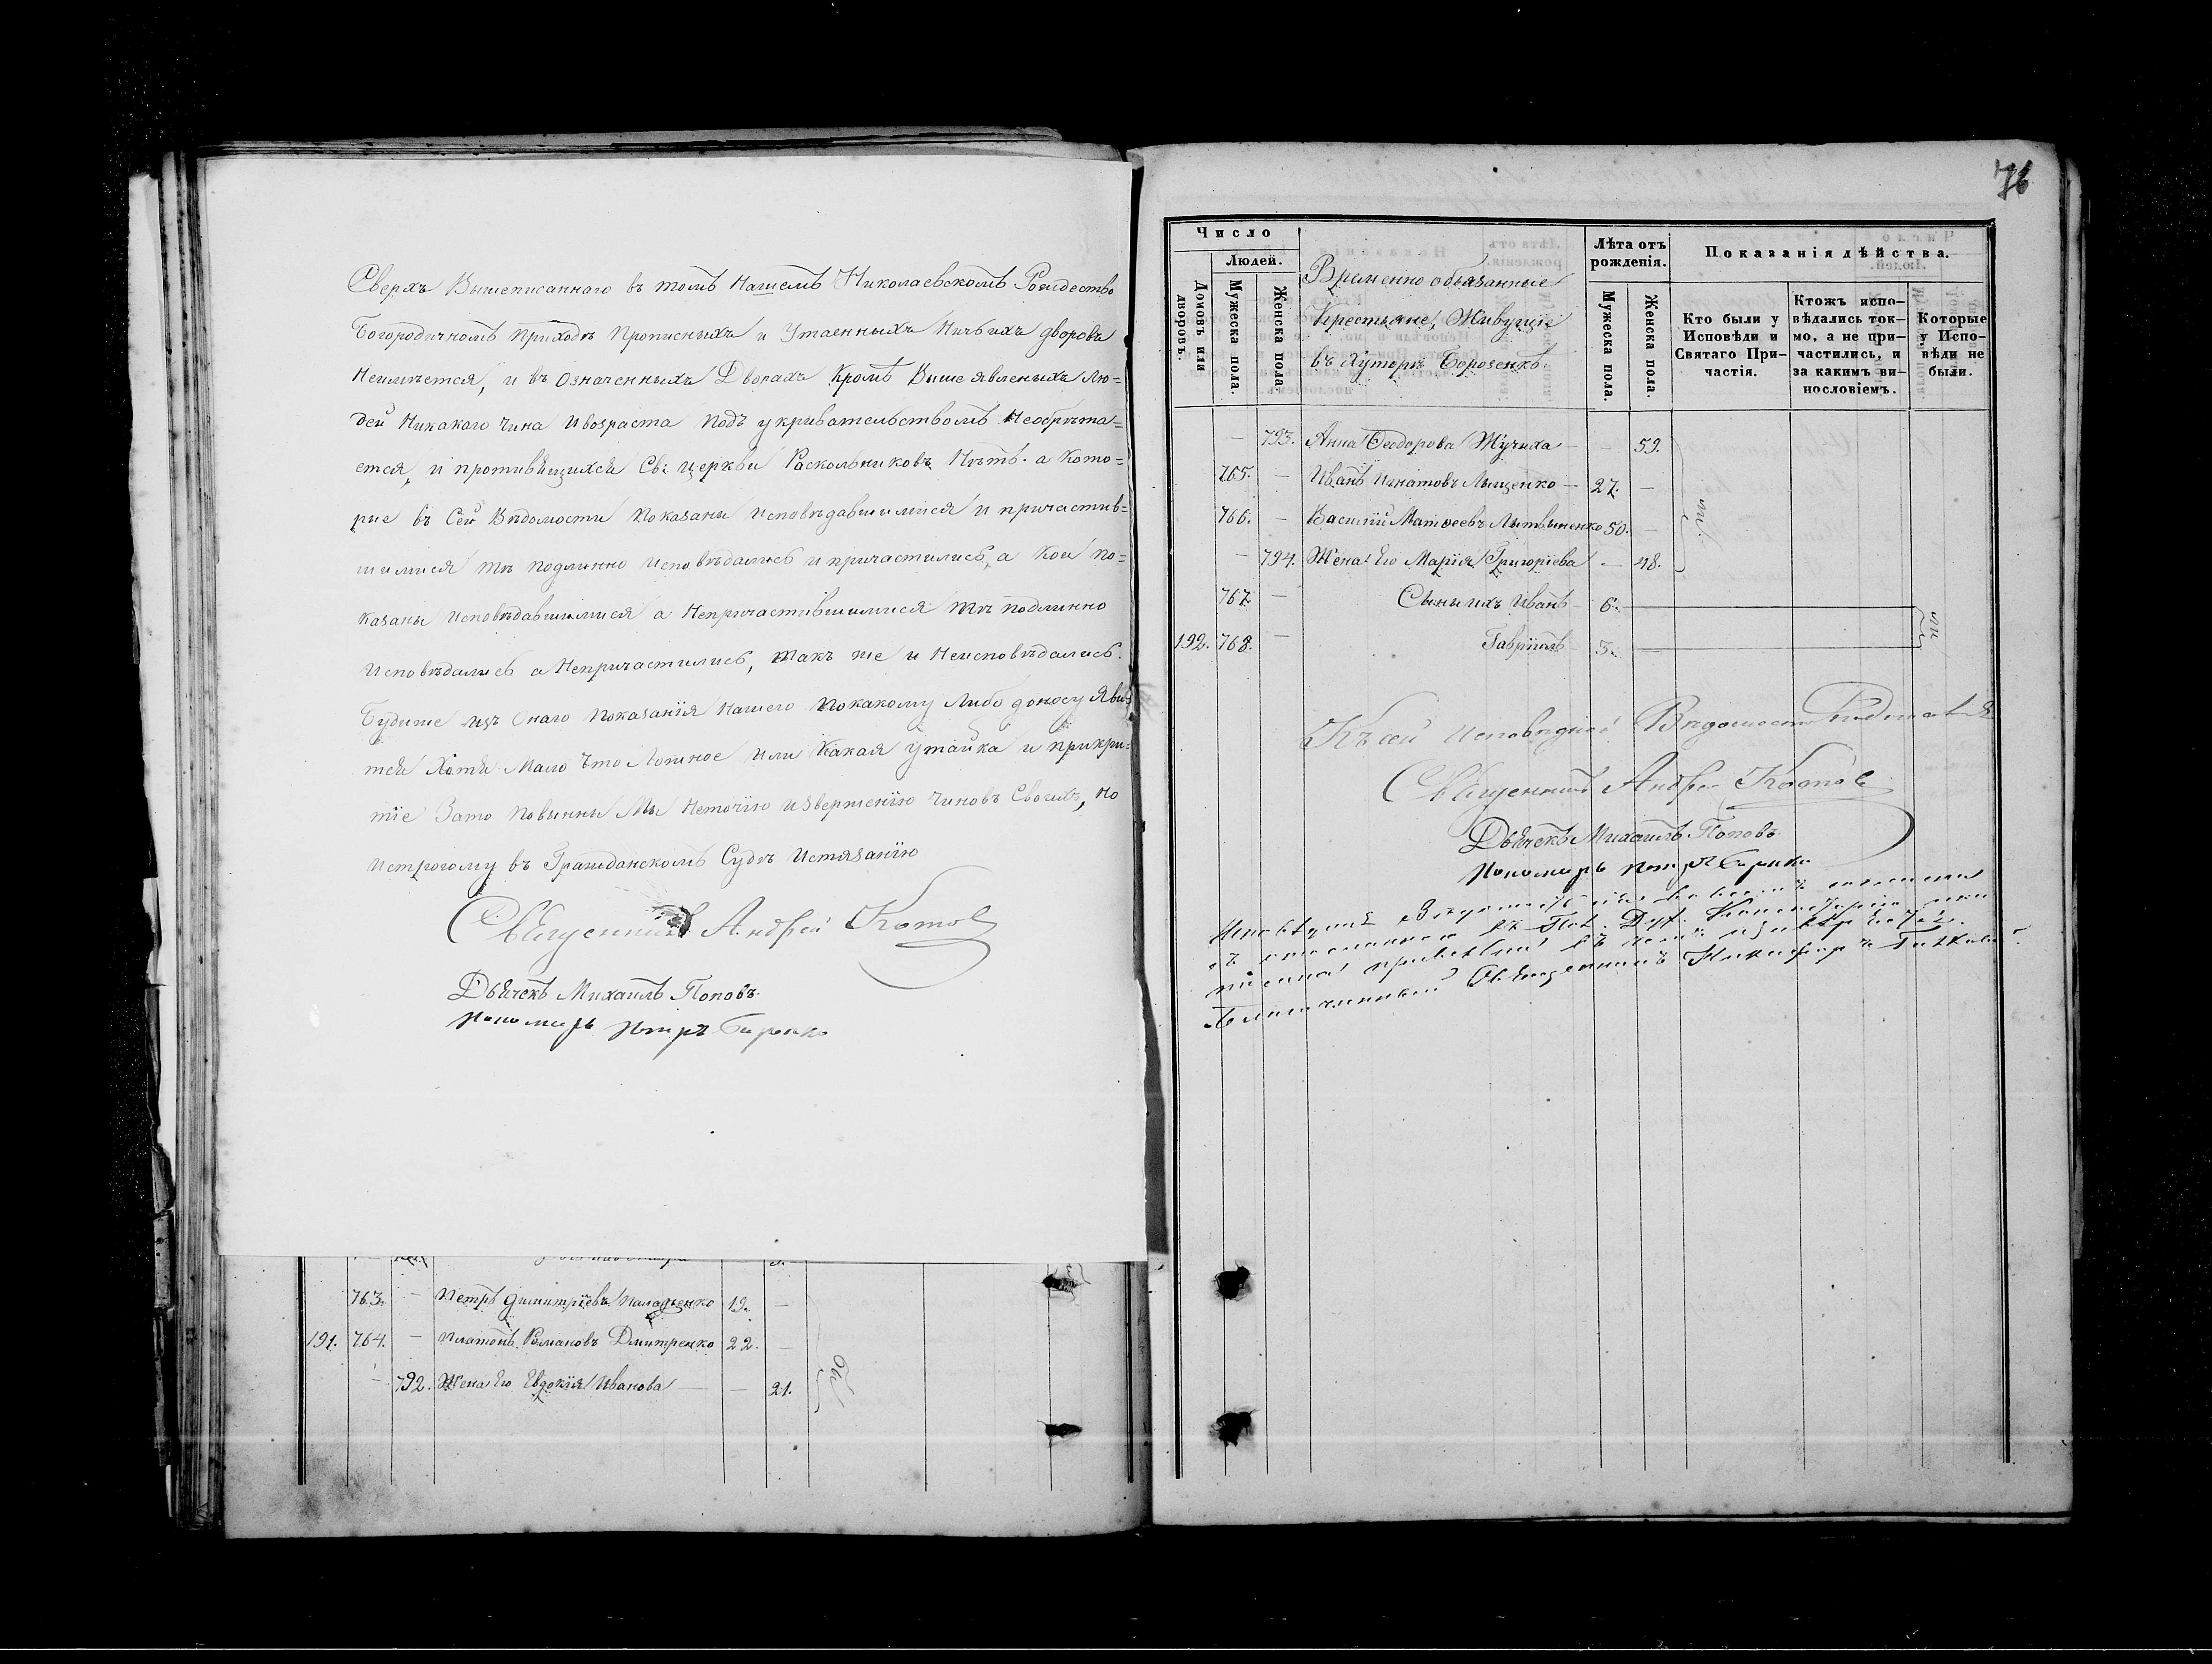 Сверхъ Вышеписаннаго въ томъ Нашемъ Николаевскомъ Рождество
Богородичномъ приходѣ Прописныхъ и Утаенныхъ Ничьихъ дворовъ
Неимѣется, и въ Означенныхъ Дворахъ Кромѣ Выше явленыхъ лю=
дей Никакаго Чина ивозраста Подъ укривательствомъ Необрѣта=
ется, и противящихся Св: церкви Раскольниковъ Нѣтъ. а Кото=
рые въ Сей Вѣдомости Показаны исповѣдавшимися и причастив=
шимися тѣ подлинно исповѣдались и причастились, а Кои по=
казаны исповѣдавшимися а Непричастившимися тѣ подлинно
исповѣдались а Непричастились, такъ же и Неисповѣдались.
Будеже изъ Онаго показанія Нашего покакому либо доносу Яви=
тся Хотя Мало Что Ложное или Какая утайка и прикри=
тіе Зато повинны Мы Неточію извержению Чиновъ Своихъ, но
истрогому въ Гражданскомъ Судѣ Истязанію
Священникъ Андрей Котов
Дьячекъ Михаилъ Поповъ.
Пономарь Петръ
763. — Петръ Димитріевъ 19. —
191. 764. — Платонъ Романовъ Дмитренко 22. —
— 792. Жена Его Евдокія Иванова — — 21.
76
Число
Людей.
Домовъ или дворовъ.
Мужеска пола.
Женска пола.
Временно обязанные
крестьяне, Живущіе
въ Хуторѣ Борозенкѣ.
Лѣта отъ рожденія.
Мужеска пола.
Женска пола.
Показанія дѣйства.
Кто были у Исповѣди и Святаго Причастія.
Ктожъ исповѣдались токмо, а не причастились, и за какимъ винословіемъ.
Которые у Исповѣди не были.
— 793. Анна Ѳеодорова Жучиха — — 59.
765. — Иванъ Игнатовъ Лыщенко — 27. —
766. — Василій Матѳеевъ Литвиненко 50. —
— 794. Жена Его Марія Григоріева — 48.
767. — Сыны ихъ Иванъ 6.
192. 768. — Гавріилъ 5.
Къ сей исповѣдной Вѣдомости
Священникъ Андрей Котов
Дьячекъ Михаилъ Поповъ.
Пономарь Петръ
Благочинный Священникъ Никифоръ